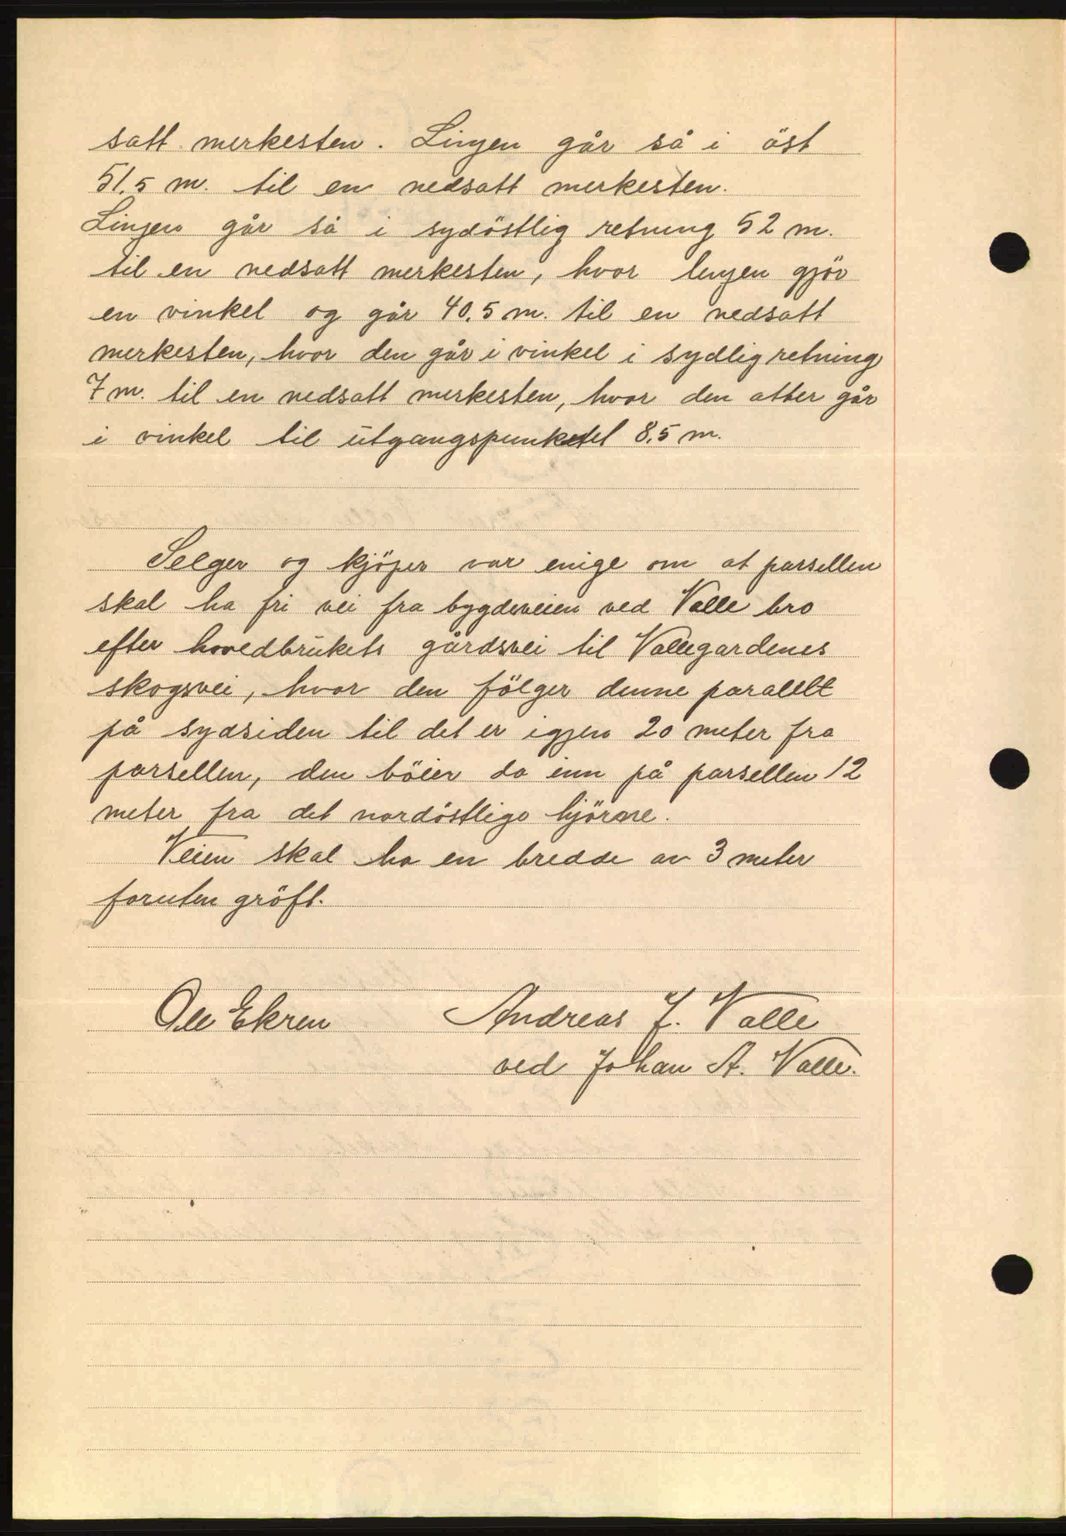 satt merkesten. Linjen går så i öst
51,5 m. til en nedsatt merkesten.
Linjen går så i sydöstlig retning 52 m.
til en nedsatt merkesten, hvor linjen gjör
en vinkel og går 40,5 m. til en nedsatt
merkesten, hvor den går i vinkel i sydlig retning
7 m. til en nedsatt merkesten, hvor den atter går
i vinkel til utgangspunktet 8,5 m.
Selger og kjöper var enige om at parsellen
skal ha fri vei fra bygdeveien ved Valle bro
efter hovedbrukets gårdsvei til Vallegardenes
skogsvei, hvor den fölger denne paralelt
på sydsiden til det er igjen 20 meter fra
parsellen, den böier da inn på parsellen 12
meter fra det nordöstlige hjörne.
Veien skal ha en bredde av 3 meter
foruten gröft.
Ole Ekren Andreas J. Valle
ved Johan A. Valle.